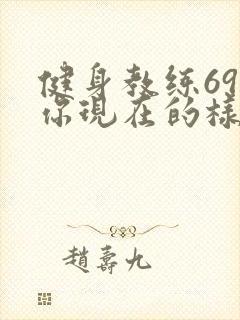 健身教练69
你現在的樣
趙壽九